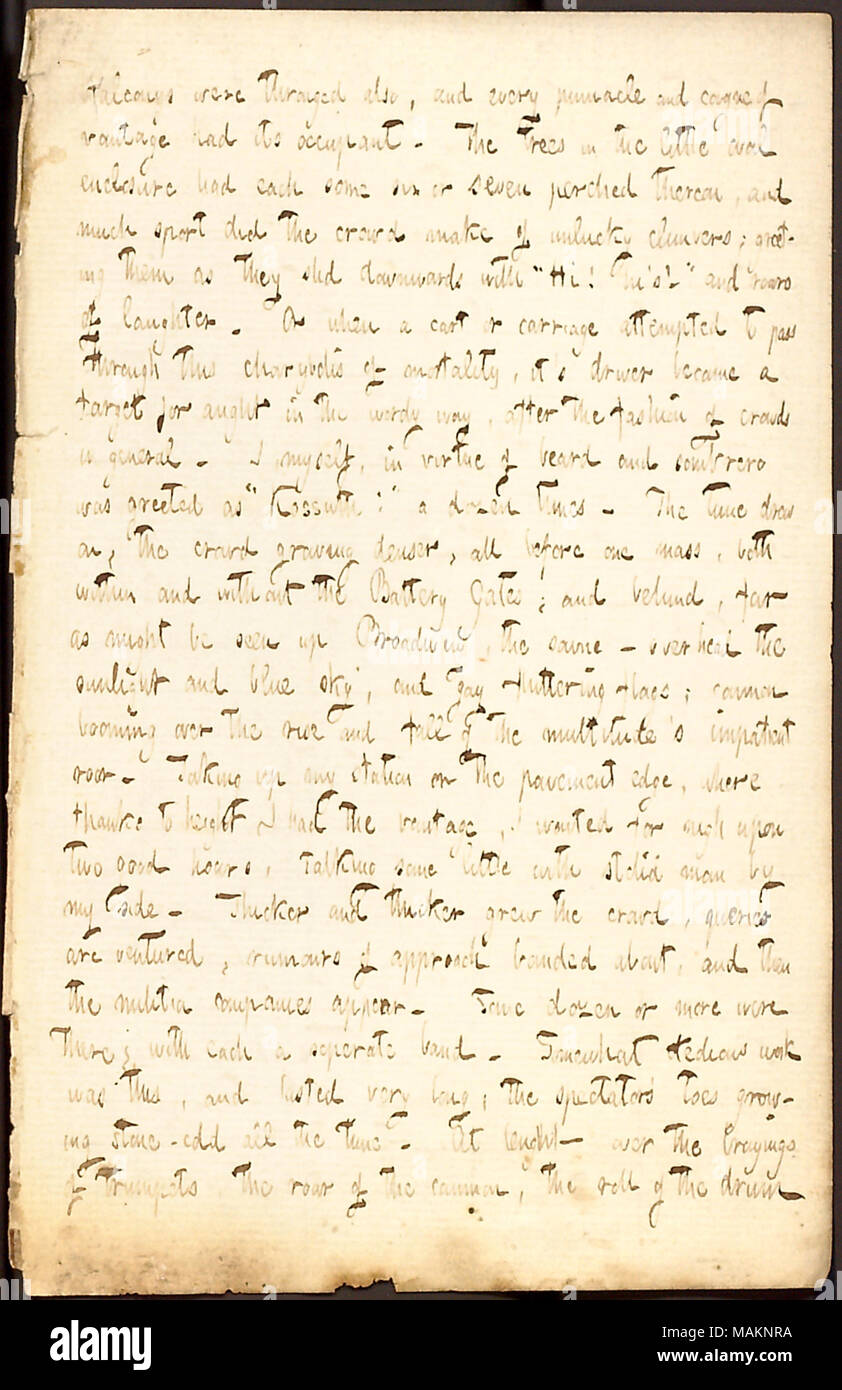 balconys were thronged also, and every pinnacle and coigne of
vantage had its occupant. The trees in the little oval
enclosure had each some six or seven perched thereon, and
much sport did the crowd make of unlucky climbers; greet-
ing them as they slid downwards with "Hi! hi's!" and roars
of laughter. Or when a cart or carriage attempted to pass
through this charybdis of mortality, it's driver became a
target for aught in the wordy way, after the fashion of crowds
in general. I, myself, in virtue of beard and sombrero
was greeted as "Kossuth!" a dozen times. The time draws
on, the crowd growing denser, all before one mass, both
within and without the Battery Gates; and behind, far
as might be seen up Broadway, the same - overhead the
sunlight and blue sky, and gay fluttering flags; cannon
booming over the rise and fall of the multitude's impatient
roar. Taking up my station on the pavement edge, where
thanks to height I had the vantage, I waited for nigh upon
two good hours, talking some little with stolid man by
my side. Thicker and thicker grew the crowd, queries
are ventured, rumours of approach bandied about, and then
the militia companies appear. Some dozen or more were
there; with each a seperate band. Somewhat tedious work
was this, and lasted very long; the spectators toes grow-
ing stone-cold all the time. At lenght over the brayings
of trumpets the roar of the cannon, the roll of the drum
alamy
Image ID: MAKNRA
www.alamy.com